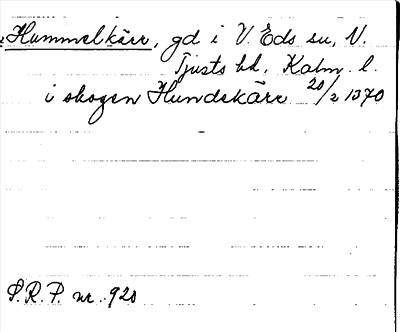 Hummelkärr, gd i V. Eds sn, N.
Tjusts hd, Kalm. l.
i skogen Hundekärr 20/2 1370
S.R.P. nr. 920